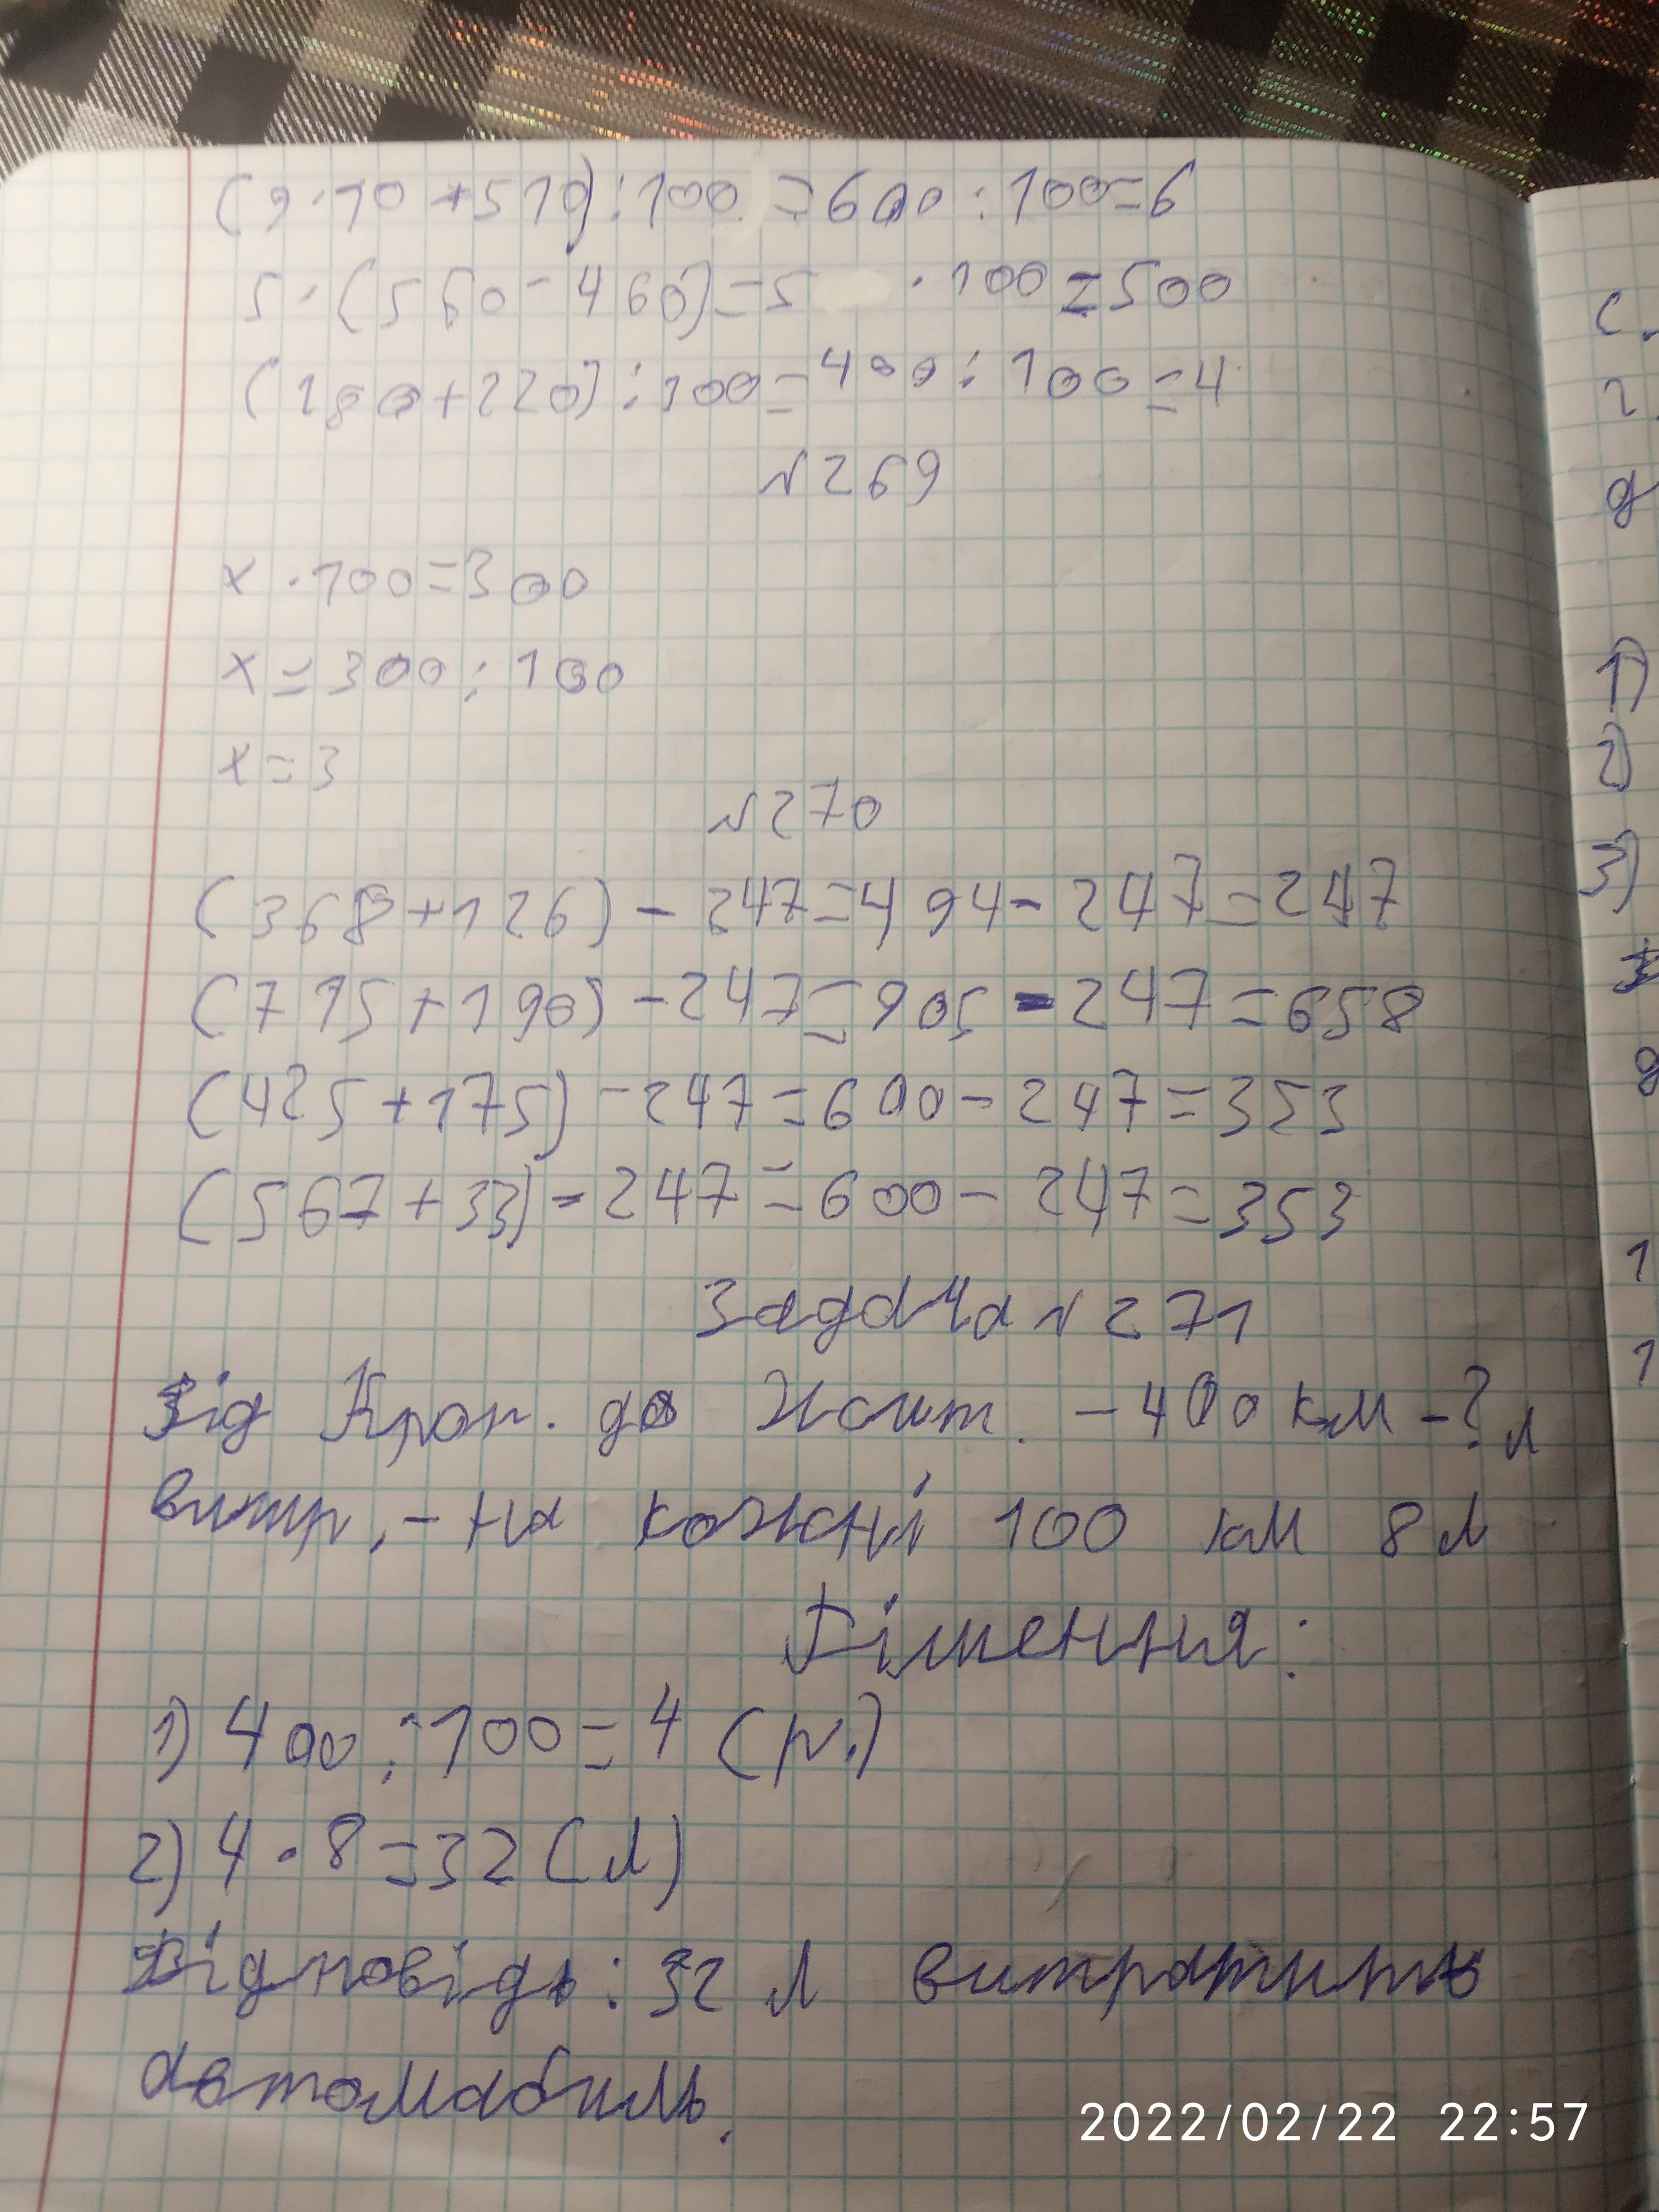 (9·10+510):100=600:100=6
5·(560-460)=5·100=500
(180+220):100=400:100=4
№269
x·100=300
x=300:100
x=3
№270
(368+126)-247=494-247=247
(715+190)-247=905-247=658
(425+175)-247=600-247=353
(567+33)-247=600-247=353
Задача №271
Від Кроп. до Жит. -400 км -? л
витр, - на кожні 100 км 8 л
Рішення:
1) 400:100=4 (р.)
2) 4·8=32 (л)
Відповідь: 32 л витратить
автомабиль.
с.
2.
д
1)
2)
3)
1
1
2022/02/22 22:57